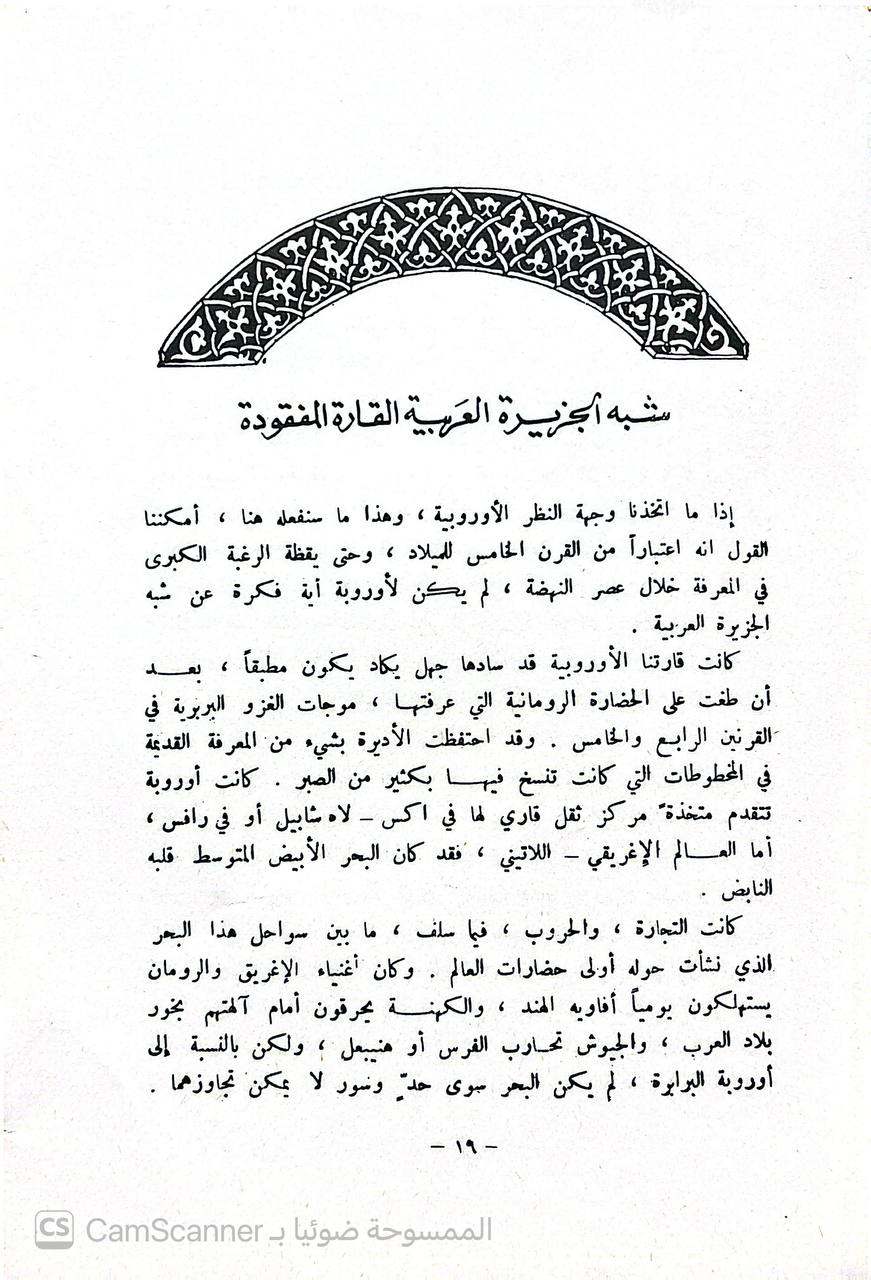 شبه الجزيرة العَربية القارة المفقودة
إذا ما اتخذنا وجهة النظر الأوروبية ، وهذا ما سنفعله هنا ، أمكننا
القول انه اعتباراً من القرن الخامس للميلاد ، وحتى يقظة الرغبة الكبرى
في المعرفة خلال عصر النهضة ، لم يكن لأوروبة أية فكرة عن شبه
الجزيرة العربية .
كانت قارتنا الأوروبية قد سادها جهل يكاد يكون مطبقاً ، بعـــد
أن طغت على الحضارة الرومانية التي عرفتهـا ، موجات الغزو البربرية في
القرنين الرابع والخامس . وقد احتفظت الأديرة بشيء من المعرفة القديمة
في المخطوطات التي كانت تنسخ فيهـــا بكثير من الصبر . كانت أوروبة
تتقدم متخذةً مركز ثقل قاري لها في اكس – لاه شابيل أو في رافس ،
أما العـــالم الإغريقي – اللاتيني ، فقد كان البحر الأبيض المتوسط قلبه
النابض .
كانت التجارة ، والحروب ، فيما سلف ، ما بين سواحل هذا البحر
الذي نشأت حوله أولى حضارات العالم . وكان أغنياء الإغريق والرومان
يستهلكون يومياً أفاويه الهند ، والكهنـــة يحرقون أمام آلهتهم بخور
بلاد العرب ، والجيوش تحـارب الفرس أو هنيبعل ، ولكن بالنسبة إلى
أوروبة البرابرة ، لم يكن البحر سوى حدٍّ وسور لا يمكن تجاوزهما .
– ١٩ –
CS CamScanner الممسوحة ضوئيا بـ